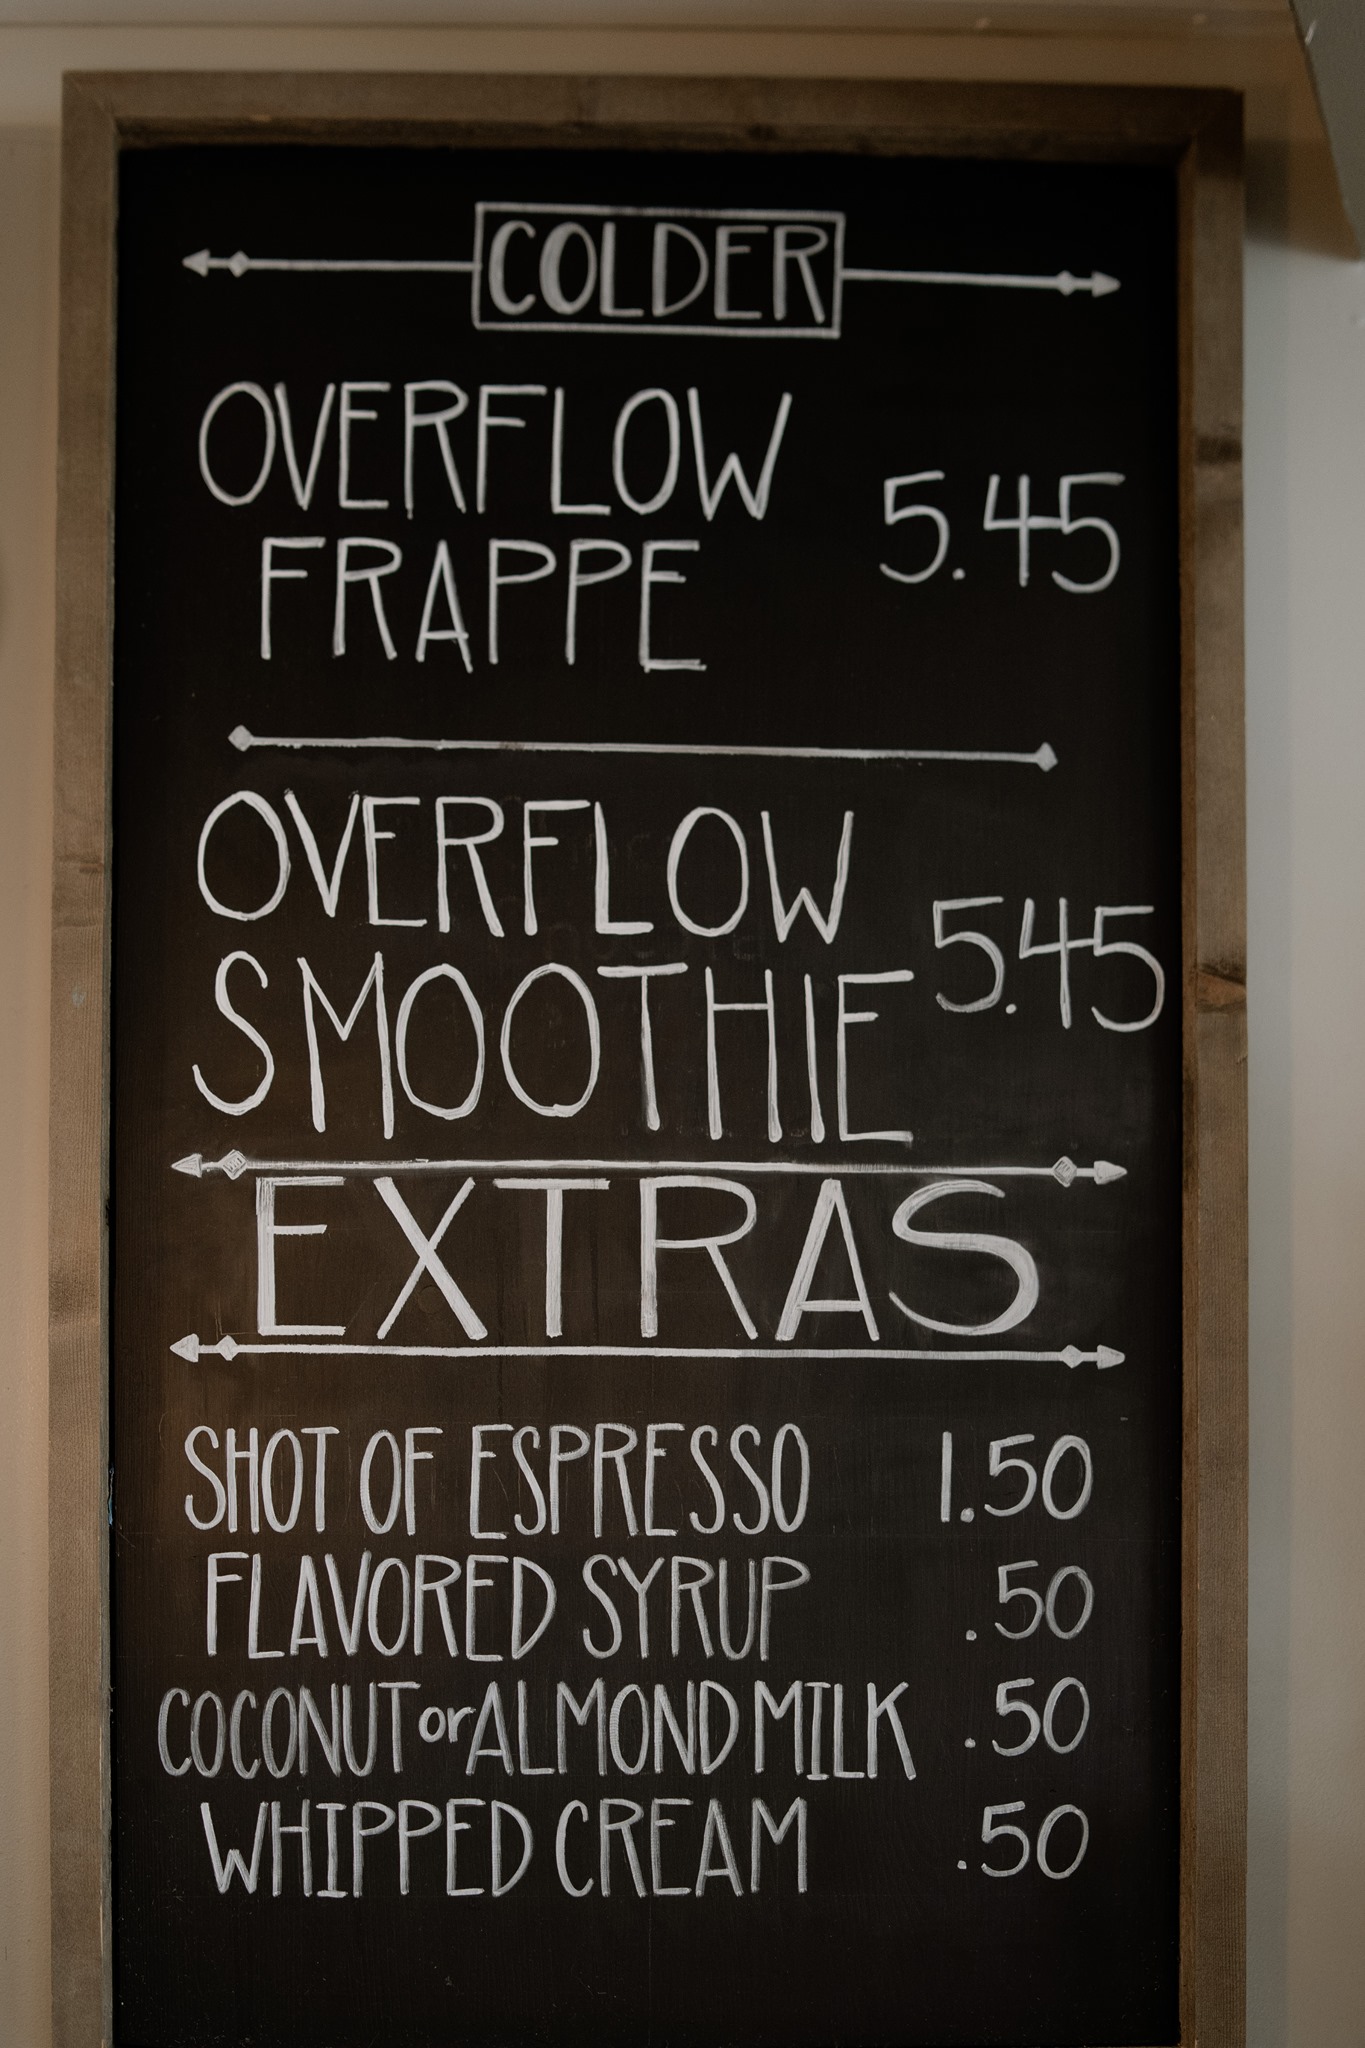 COLDER
OVERFLOW
FRAPPE 5.45
OVERFLOW
SMOOTHIE 5.45
EXTRAS
SHOT OF ESPRESSO 1.50
FLAVORED SYRUP .50
COCONUT or ALMOND MILK .50
WHIPPED CREAM .50